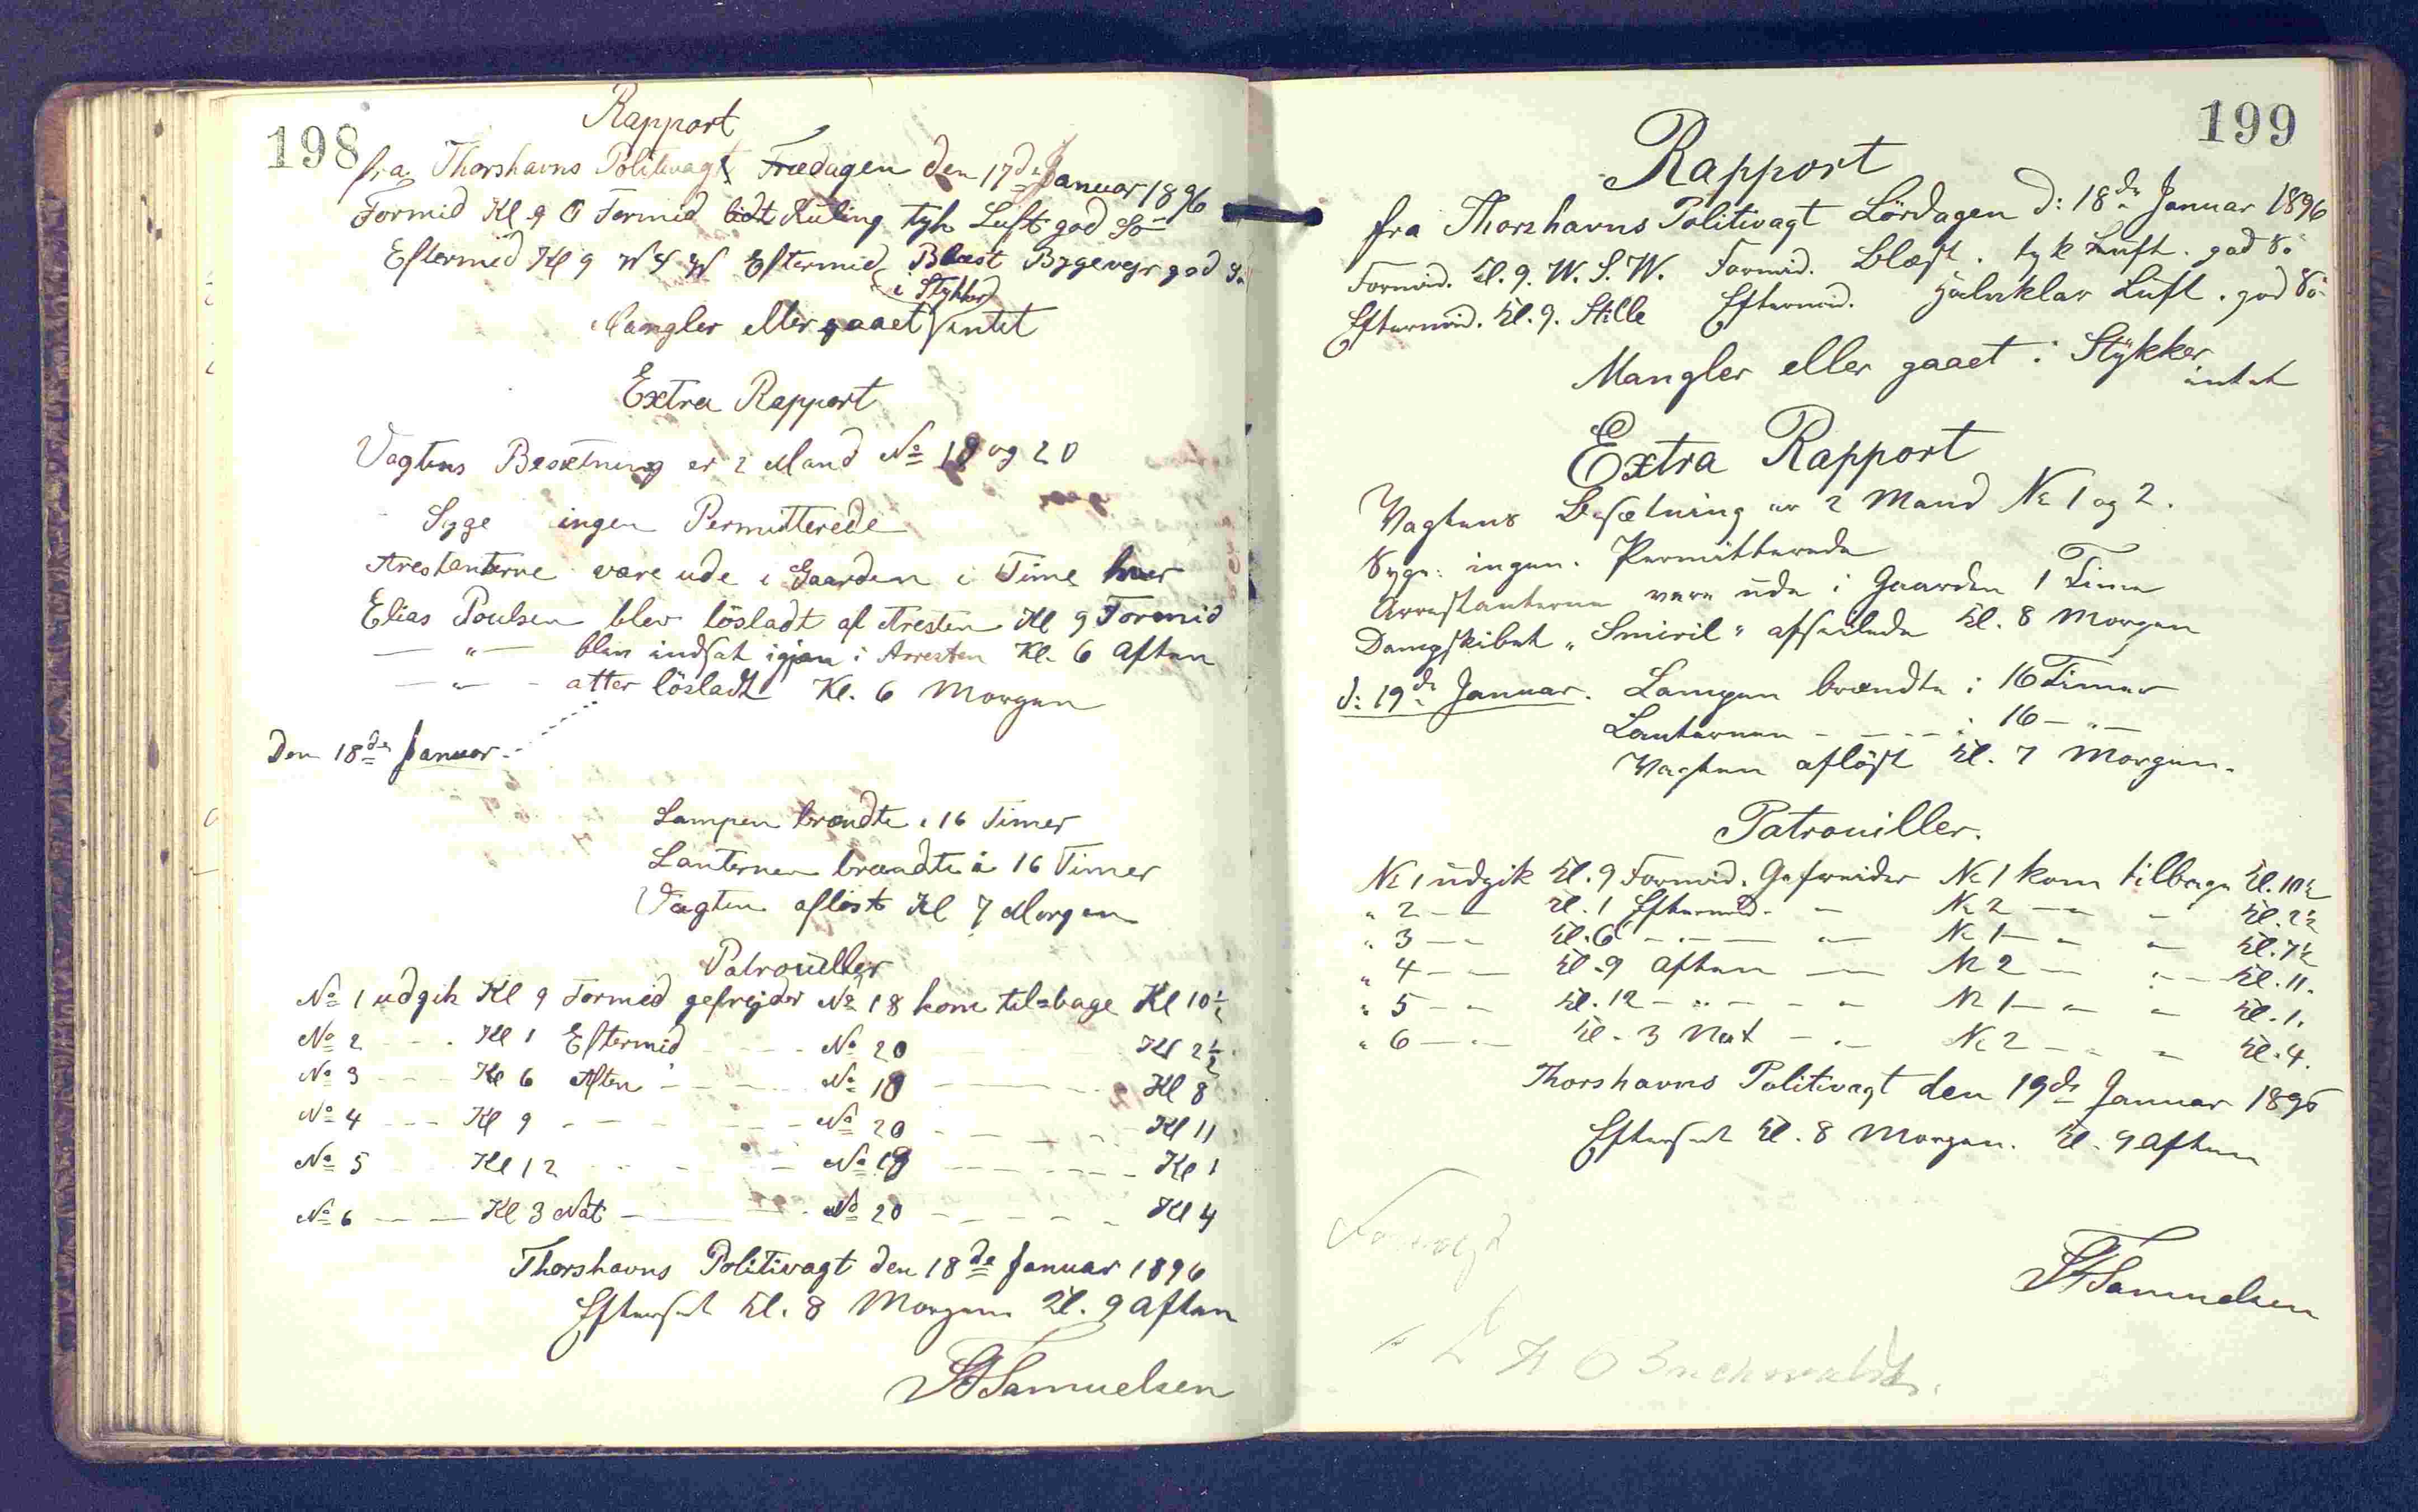 198
Rapport
fra Thorshavns Politivagt Fredagen den 17de Januar 1896
Formid Kl 9 O Formid lidt Kuling tyk Luft god Sö
Eftermid Kl 9 W S W Eftermid Blæst Bygevejr god Sö
i Stykker
Mangler eller gaaet intet
Extra Rapport
Vagtens Besætning er 2 Mand No 18 og 20
Syge ingen Permitterede
Arestanterne vare ude i Gaarden 1 Time hver
Elias Poulsen blev lösladt af Aresten Kl 9 Formid
— " — blev indsat igjen i Arresten Kl. 6 Aften
— " — atter lösladt Kl. 6 Morgen
Den 18de Januar.
Lampen brændte i 16 Timer
Lanternen brændte i 16 Timer
Vagten aflöst Kl 7 Morgen
Patrouiller
No 1 udgik Kl 9 Formid gefrejder No 18 kom tilbage Kl 10½
No 2 - - - Kl 1 Eftermid - - - No 20 - - - Kl 2½
No 3 - - - Kl 6 Aften - - - No 18 - - - Kl 8
No 4 - - - Kl 9 - - - No 20 - - - Kl 11
No 5 Kl 12 - - - No 18 - - - Kl 1
No 6 - - - Kl 3 Nat - - - No 20 - - - Kl 4
Thorshavns Politivagt den 18de Januar 1896
Efterset Kl. 8 Morgen Kl. 9 Aften
Samuelsen
199
Rapport
fra Thorshavns Politivagt Lördagen d: 18de Januar 1896
Formid. Kl. 9. W. S. W. Formid. Blæst. tyk Luft. god Sö
Eftermid. Kl. 9. Stille Eftermid. Luft. god Sö
Mangler eller gaaet i Stykker
intet
Extra Rapport
Vagtens Besætning er 2 Mand No 1 og 2.
Syge: ingen. Permitterede
Arrestanterne vare ude i Gaarden 1 Time
Dampskibet "Smiril" afseilede Kl. 8 Morgen
d: 19de Januar. Lampen brændte i 16 Timer
Lanternen - - - - i 16 — " —
Vagten aflöst Kl. 7 Morgen.
Patrouiller.
No 1 udgik Kl. 9 Formid. Gefreider No 1 kom tilbage Kl. 10½
" 2 — — Kl. 1 Eftermid. — No 2 — — — Kl. 2½
" 3 — — Kl. 6 — " — — No 1 — — — Kl. 7½
" 4 — — Kl. 9 Aften — No 2 — — — Kl. 11.
" 5 — — Kl. 12 — " — — No 1 — — — Kl. 1.
" 6 — — Kl. 3 Nat — — No 2 — — — Kl. 4.
Thorshavns Politivagt den 19de Januar 1896
Efterset Kl. 8 Morgen. Kl. 9 Aften
Samuelsen